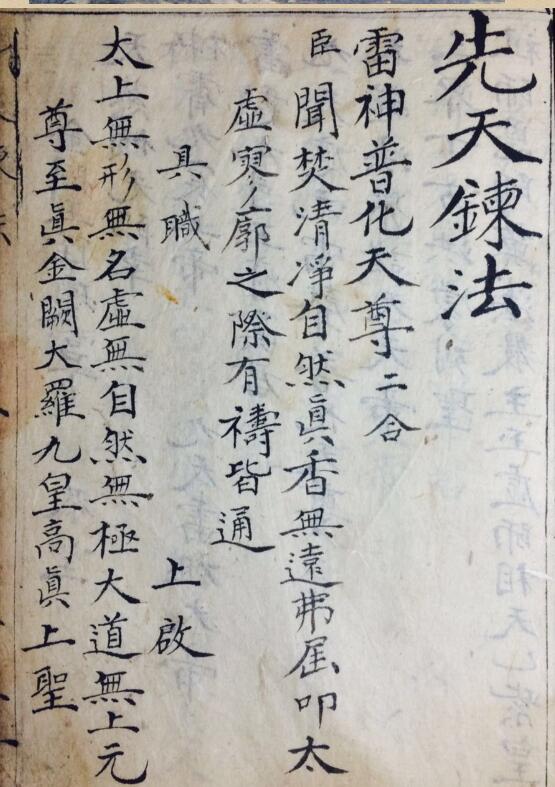 先天鍊法
雷神普化天尊二合
臣聞焚清淨自然眞香無遠弗届叩太
虛寥廓之際有禱皆通
具職 上啟
太上無形無名虛無自然無極大道無上元
尊至眞金闕大羅九皇高眞上聖